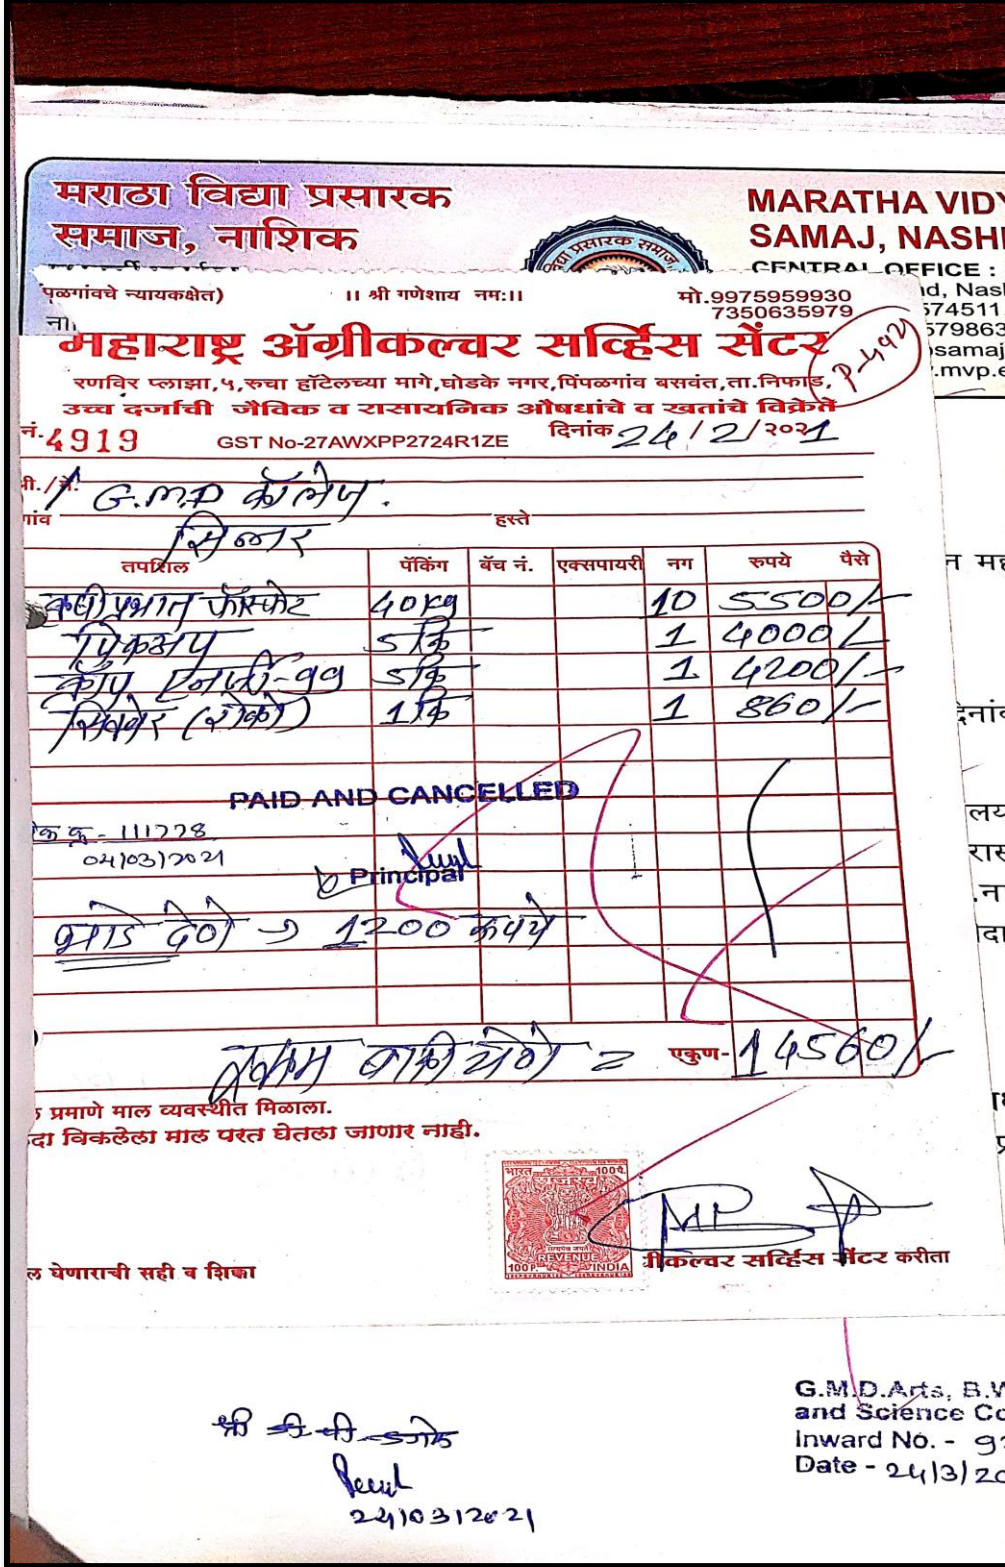 मराठा विद्या प्रसारक
समाज, नाशिक
MARATHA VIDY
SAMAJ, NASHI
CENTRAL OFFICE :
d, Nas
574511
579863
samaj
.mvp.e
पळगांवचे न्यायकक्षेत)
।। श्री गणेशाय नमः।।
मो.9975959930
7350635979
महाराष्ट्र ॲग्रीकल्चर सर्व्हिस सेंटर
रणविर प्लाझा,५,रुचा हॉटेलच्या मागे,घोडके नगर,पिंपळगांव बसवंत,ता.निफाड,
उच्च दर्जाची जैविक व रासायनिक औषधांचे व खतांचे विक्रेते
नं.4919
GST No-27AWXPP2724R1ZE
दिनांक 24/2/२०२1
G.M.D कॉलेज.
गांव सिन्नर हस्ते
तपशिल पॅकिंग बॅच नं. एक्सपायरी नग रुपये पैसे
फॉस्फेट 40kg 10 5500/-
पिकअप 5कि 1 4000/-
5कि 1 4200/-
(रोको) 1कि 1 860/-
PAID AND CANCELLED
111778
04/03/2021
Principal
भाडे देणे 1200 रुपये
रक्कम बाकी येणे = एकुण- 14560/-
प्रमाणे माल व्यवस्थीत मिळाला.
दा विकलेला माल परत घेतला जाणार नाही.
भारत 100पै.
REVENUE
100P. INDIA
ल घेणाराची सही व शिक्का
ग्रीकल्चर सर्व्हिस सेंटर करीता
G.M.D.Arts, B.W
and Science Co
Inward No. - 9
Date - 24/3/20
श्री
24/03/2021